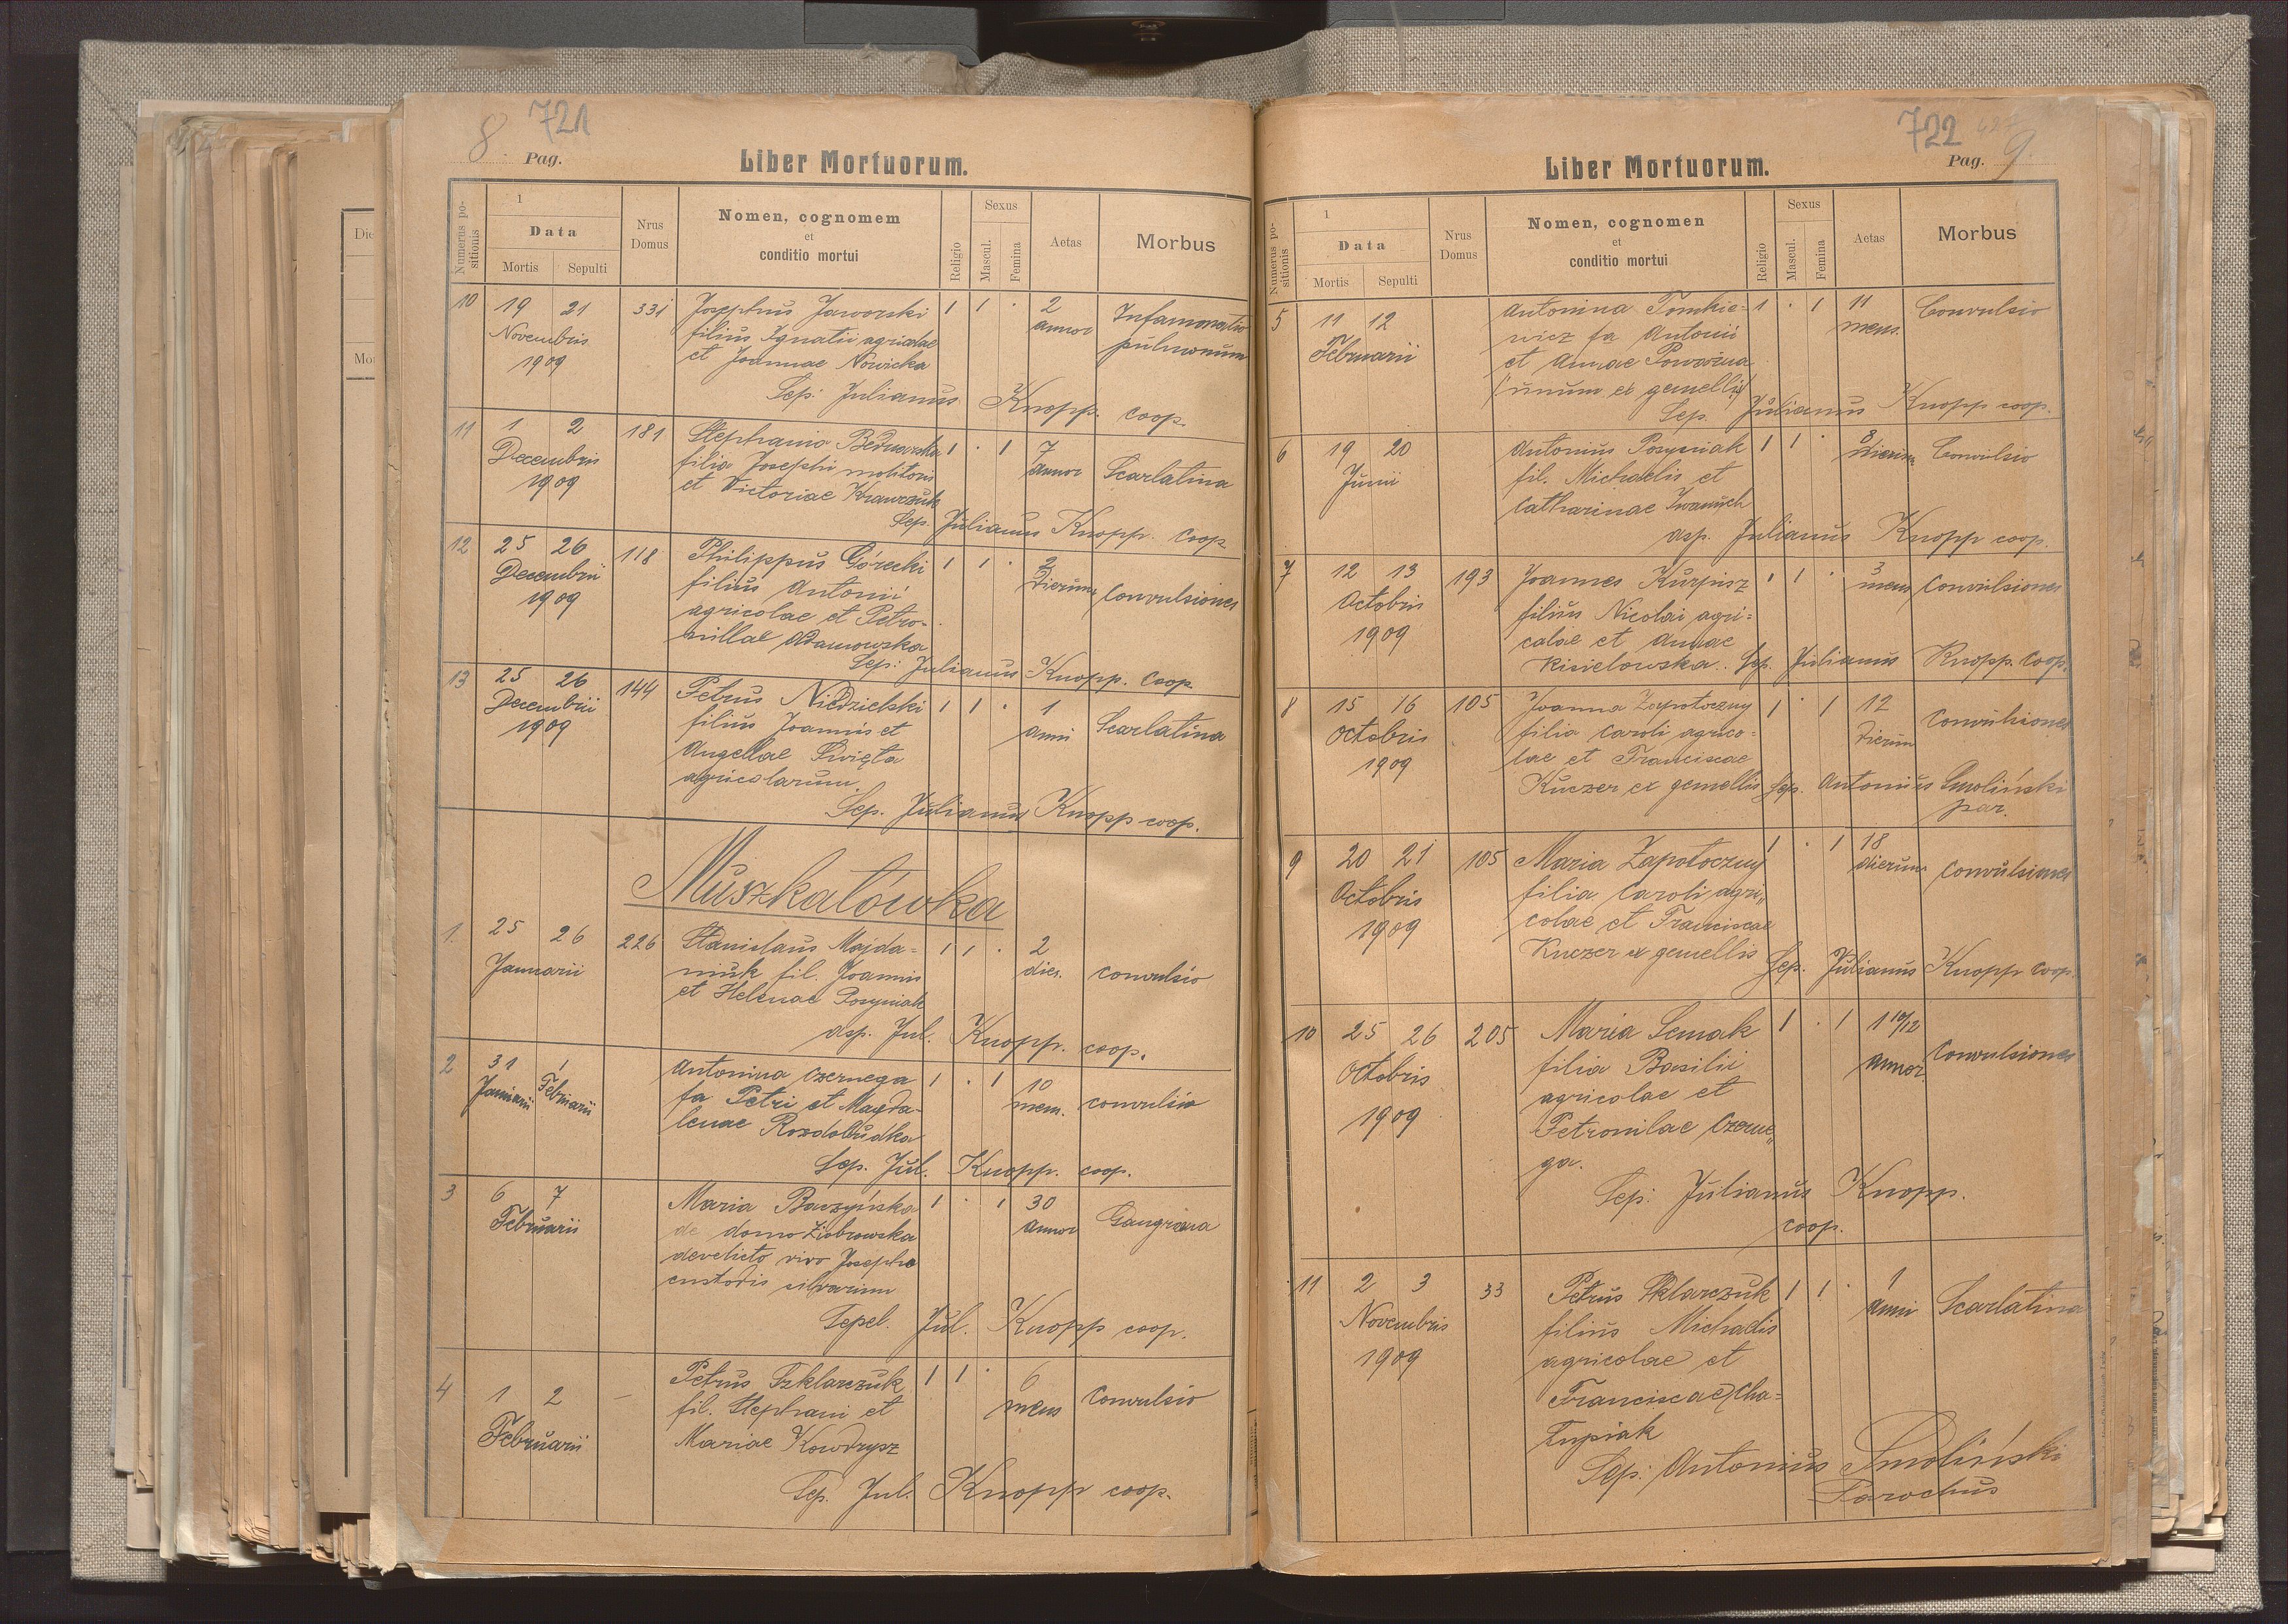 8 721
Pag.
Liber Mortuorum.
Numerus positionis
1
Data
Mortis Sepulti
Nrus Domus
Nomen, cognomem
et
conditio mortui
Religio
Sexus
Mascul. Femina
Aetas
Morbus
10 19 21 331 Josephus Jaworski 1 1 · 2
Novembris filius Ignatii agricolae annor
1909 et Joannae Nowicka pulmonum
Sep: Julianus Knopp. coop.
11 1 2 181 Stephania Bednarska 1 · 1 7 Scarlatina
Decembris filia Josephi molitoris annor
1909 et Victoriae Krawczuk
Sep. Julianus Knopp. Coop
12 25 26 118 Philippus Górecki 1 1 · 2 Convulsiones
Decembrii filius Antonii dierum
1909 agricolae et Petro-
nillae Adamowska
Sep: Julianus Knopp. Coop.
13 25 26 144 Petrus Niedzielski 1 1 · 1 Scarlatina
Decembrii filius Joannis et anni
1909 Angellae Święta
agricolarum.
Sep. Julianus Knopp coop.
Muszkatówka
1. 25 26 226 Stanislaus Majda- 1 1 · 2
Januarii niuk fil. Joannis dies. convulsio
et Helenae Posyniak
asp. Jul. Knopp. coop.
2 31 1 Antonina Czernega 1 · 1 10
Januarii Februarii fa Petri et Magda- mens. convulsio
lenae Rozdobudka
Sep. Jul. Knopp. coop.
3 6 7 Maria Baczyńska 1 · 1 30
Februarii de domo Ziobrowska annor
derelicto viro Josepho
custodis silvarum
Sepel. Jul. Knopp coop.
4 1 2 – Petrus Szklarczuk 1 1 · 6
Februarii fil. Stephani et mens Convulsio
Mariae Kowdrysz
Sep. Jul. Knopp coop.
722
Pag. 9.
Liber Mortuorum.
Numerus positionis
1
Data
Mortis Sepulti
Nrus Domus
Nomen, cognomen
et
conditio mortui
Religio
Sexus
Mascul. Femina
Aetas
Morbus
5 11 12 Antonina Tomkie= 1 · 1 11 Convulsio
Februarii wicz fa Antonii mens.
et Annae
(unum ex gemellis)
Sep. Julianus Knopp coop.
6 19 20 Antonius Posyniak 1 1 · dierum Convulsio
Junii fil. Michaelis et
Catharinae Iwanych
asp. Julianus Knopp coop.
7 12 13 193 Joannes Kurpisz 1 1 · 3 Convulsiones
Octobris filius Nicolai agri= mens
1909 calae et Annae
Kisielowska. Sep. Julianus Knopp. Coop.
8 15 16 105 Joanna Zapotoczny 1 · 1 12 Convulsiones
Octobris filia Caroli agrico= dierum
1909 lae et Franciscae
Kuczer ex gemellis Sep. Antonius Smoliński
par.
9 20 21 105 Maria Zapotoczny 1 · 1 18 Convulsiones
Octobris filia Caroli agri„ dierum
1909 colae et Franciscae
Kuczer ex gemellis
Sep. Julianus Knopp coop.
10 25 26 205 Maria Semak 1 · 1 1 10/12
Octobris filia Basilii annor Convulsiones
1909 agricolae et
Petronilae Czerne„
ga.
Sep: Julianus Knopp.
coop.
11 2 3 33 Petrus Szklarczuk 1 1 · 1
Novembris filius Michaelis anni Scarlatina
1909 agricolae et
Franciscae Cha=
łupiak
Sep: Antonius Smoliński
Parochus